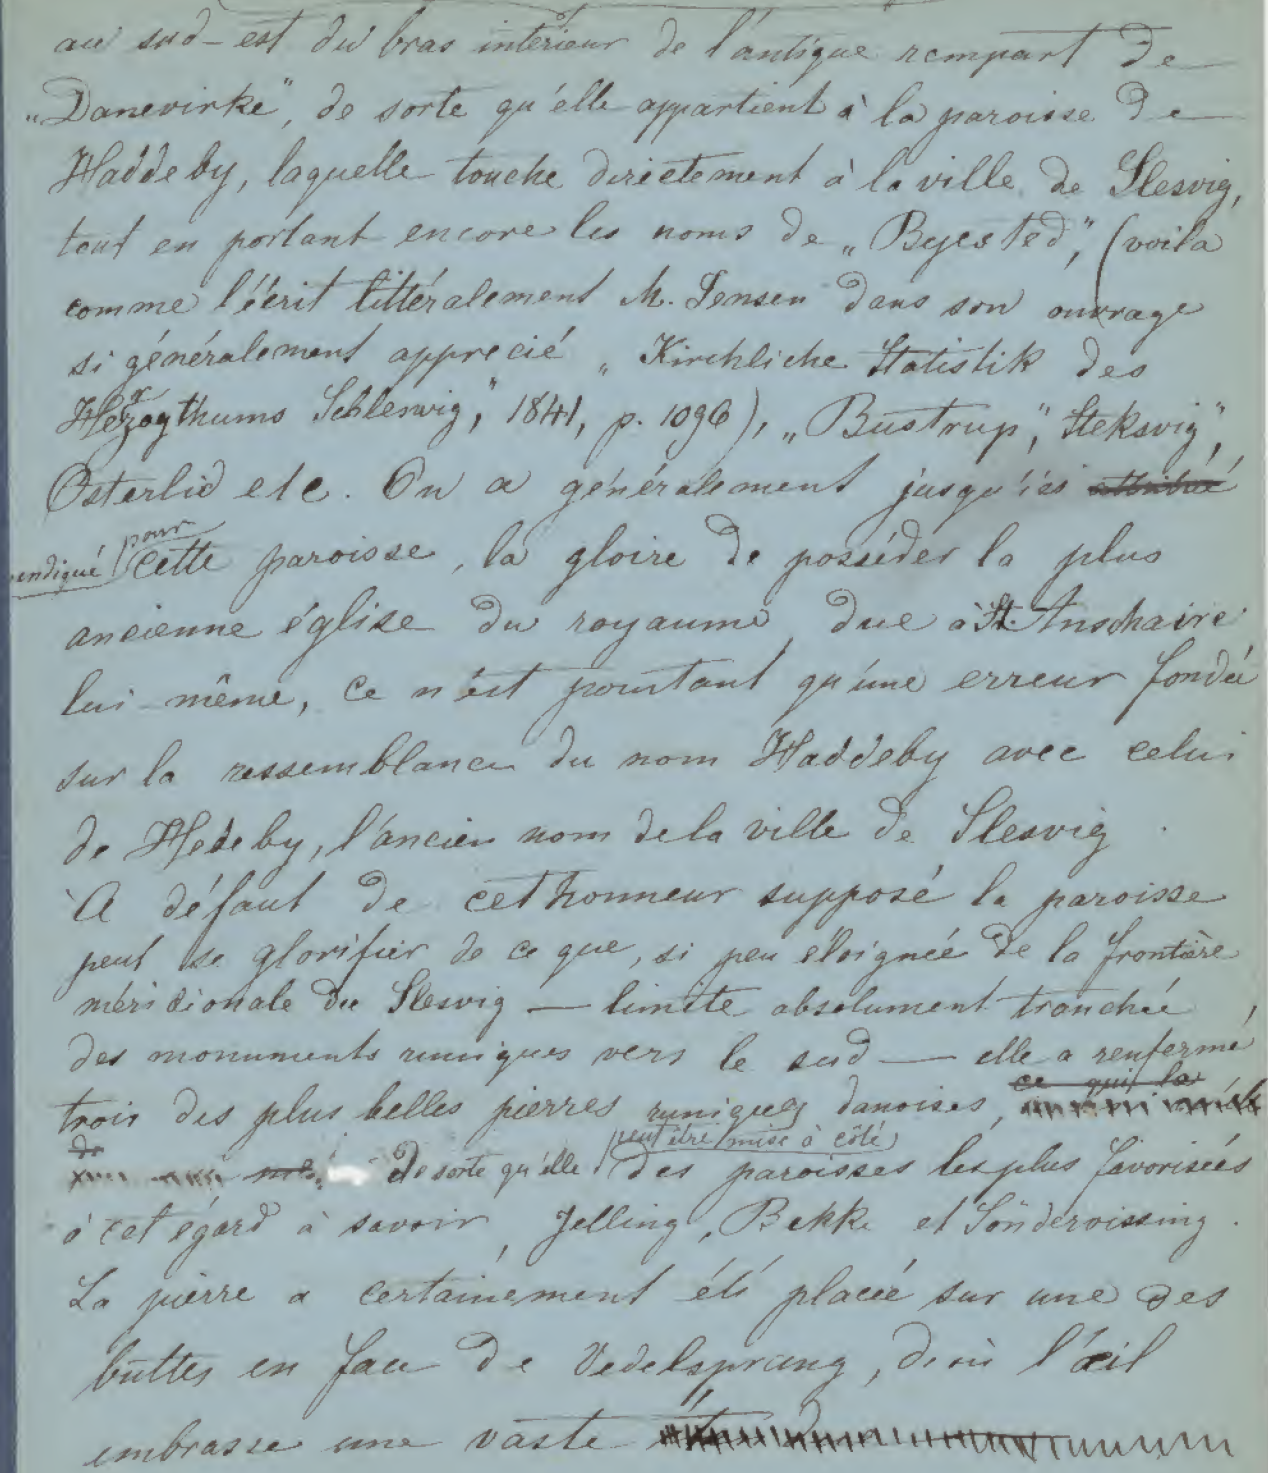 au sud-est du bras intérieur de l'antique rempart de
„Danevirke", de sorte qu'elle appartient à la paroisse de
Haddeby, laquelle touche directement à la ville de Slesvig,
tout en portant encore les noms de „Byested", (voila
comme l'écrit littéralement M. Jensen dans son ouvrage
si généralement apprecié „Kirchliche Statistik des
Herzogthums Schleswig", 1841, p. 1096), „Bustrup", Steksvig",
Osterlid etc. On a généralement jusqu'ici attribué
pour
endiqué cette paroisse, la gloire de posséder la plus
ancienne église du royaume, due à St. Anschaire
lui-même, ce n'est pourtant qu'une erreur fondée
sur la ressemblance du nom Haddeby avec celui
de Hedeby, l'ancien nom de la ville de Slesvig.
A défaut de cet honneur supposé la paroisse
peut se glorifier de ce que, si peu éloignée de la frontière
méridionale du Slesvig — limite absolument tranchée,
des monuments runiques vers le sud — elle a renfermé
ce qui la
trois des plus belles pierres runiques danoises,
de peut être mise à côté
de sorte qu'elle des paroisses les plus favorisées
à cet égard à savoir, Jelling, Bekke et Söndervissing.
La pierre a certainement été placée sur une des
buttes en face de Vedelsprang, d'où l'œil
embrasse une vaste